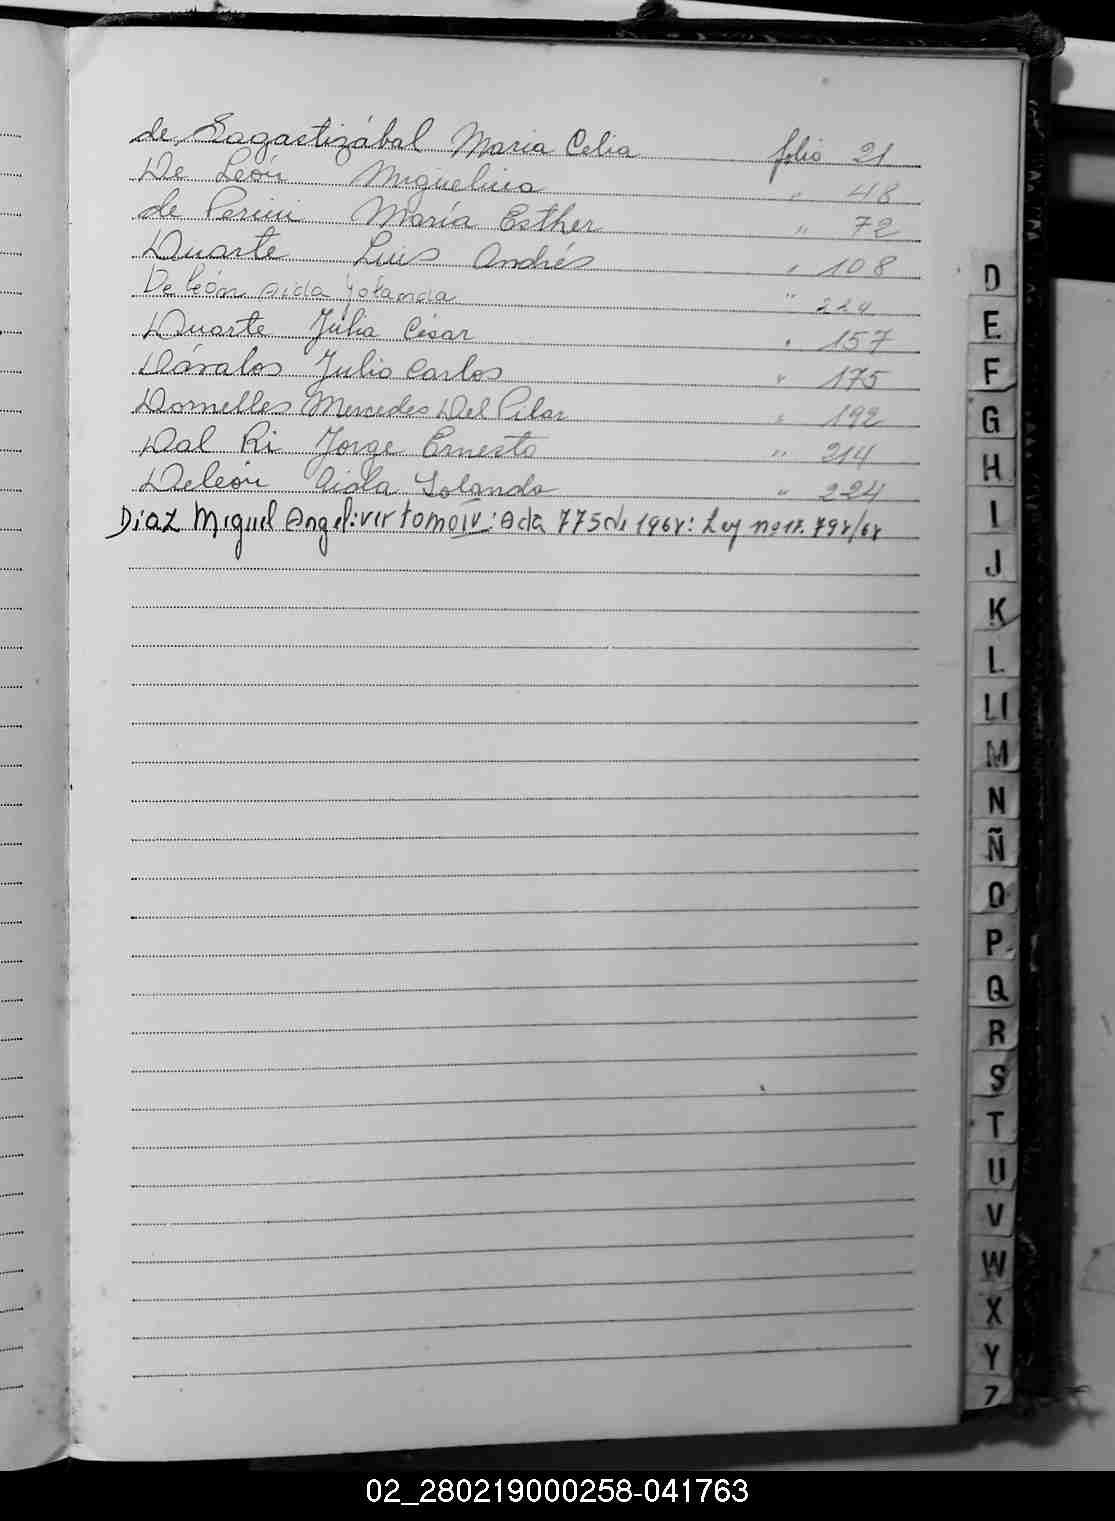 de Lagactizábal Maria Celia folio 21
De León Miguelina " 48
de Perini María Esther " 72
Duarte Luis Andrés " 108
De león Aida Yolanda " 224
Duarte Julio César " 157
Dávalos Julio Carlos " 175
Dornelles Mercedes Del Pilar " 192
Dal Ri Jorge Ernesto " 214
Deleón Aida Yolanda " 224
Diaz Miguel Angel: ver tomo IV: Acta 775 de 1968: Ley nº 17.
D
E
F
G
H
I
J
K
L
Ll
M
N
Ñ
O
P
Q
R
S
T
U
V
W
X
Y
Z
02_280219000258-041763